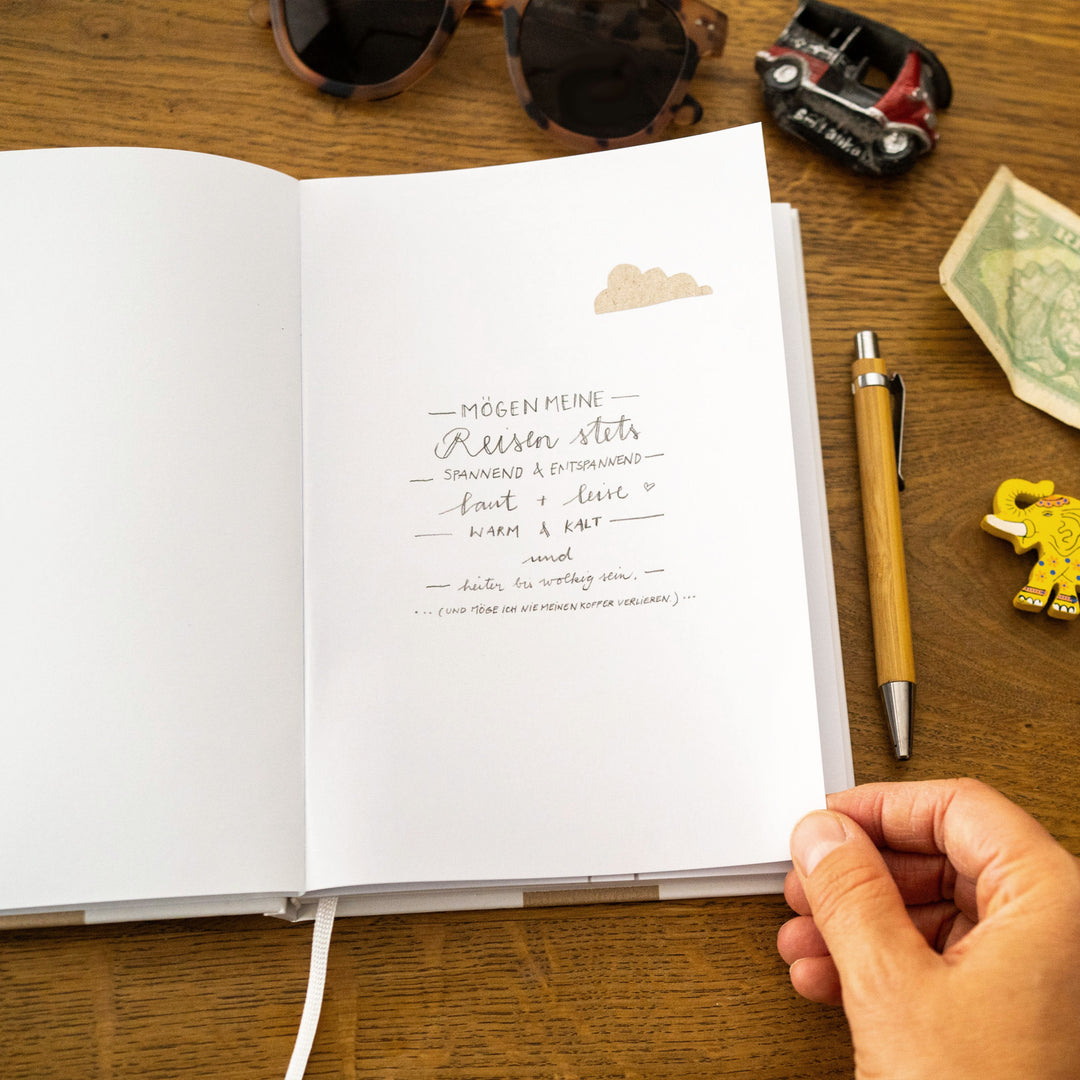 — MÖGEN MEINE —
Reisen stets
— SPANNEND & ENTSPANNEND —
laut + leise ♡
— WARM & KALT —
und
— heiter bis wolkig sein. —
... (UND MÖGE ICH NIE MEINEN KOFFER VERLIEREN.) ...